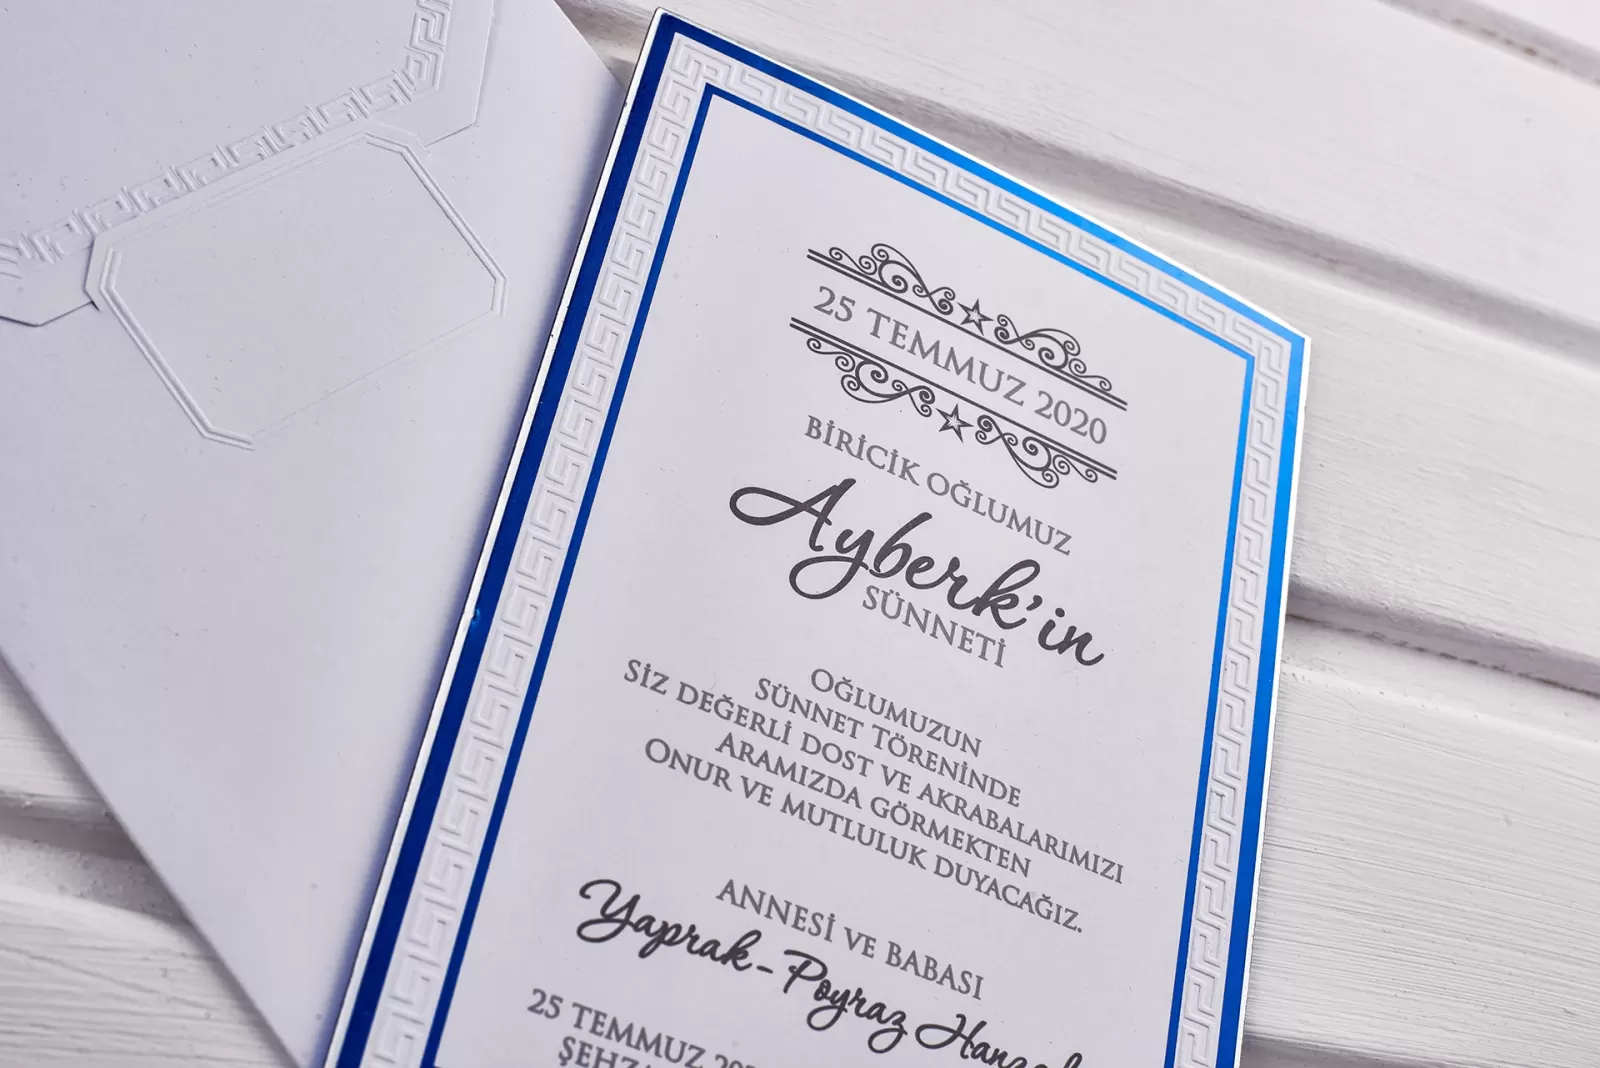 25 TEMMUZ 2020
BİRİCİK OĞLUMUZ
Ayberk'in
SÜNNETİ
OĞLUMUZUN
SÜNNET TÖRENİNDE
SİZ DEĞERLİ DOST VE AKRABALARIMIZI
ARAMIZDA GÖRMEKTEN
ONUR VE MUTLULUK DUYACAĞIZ.
ANNESİ VE BABASI
Yaprak - Poyraz
25 TEMMUZ